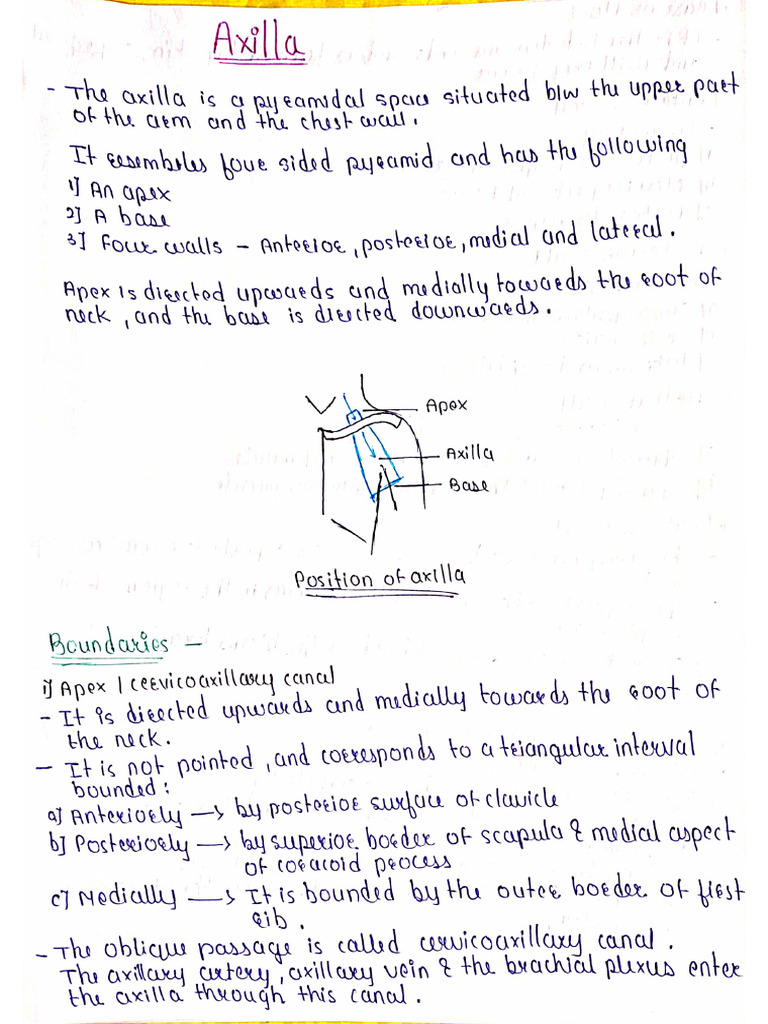 Axilla
- The axilla is a pyramidal space situated b/w the upper part
of the arm and the chest wall.
It resembeles four sided pyramid and has the following
1] An apex
2] A base
3] Four walls - Anterior, posterior, medial and lateral.
Apex is directed upwards and medially towards the root of
neck, and the base is directed downwards.
Apex
Axilla
Base
Position of axilla
Boundaries -
i) Apex / cervicoaxillary canal
- It is directed upwards and medially towards the root of
the neck.
- It is not pointed, and corresponds to a triangular interval
bounded:
a] Anteriorly → by posterior surface of clavicle
b] Posteriorly → by superior border of scapula & medial aspect
of coracoid process
c] Medially → It is bounded by the outer border of first
rib.
- The oblique passage is called cervicoaxillary canal.
The axillary artery, axillary vein & the brachial plexus enter
the axilla through this canal.